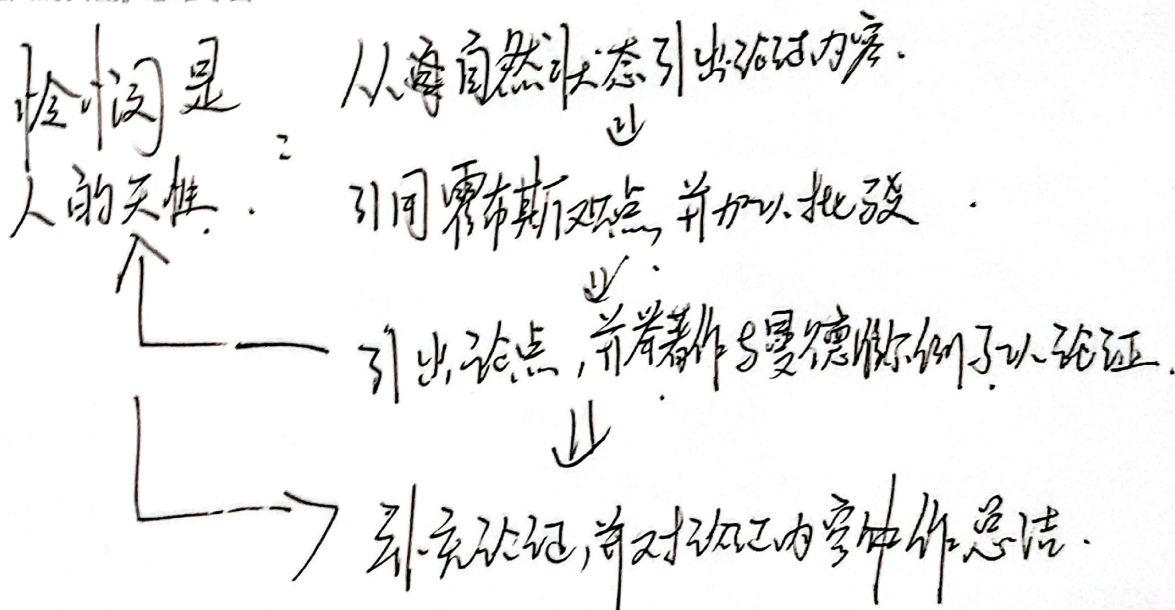 怜悯是
人的天性.
:
从自然状态引出论述内容.
引用霍布斯观点,并加以批驳.
引出论点,并举著作与曼德维尔例子以论证.
补充论证,并对论证内容作总结.